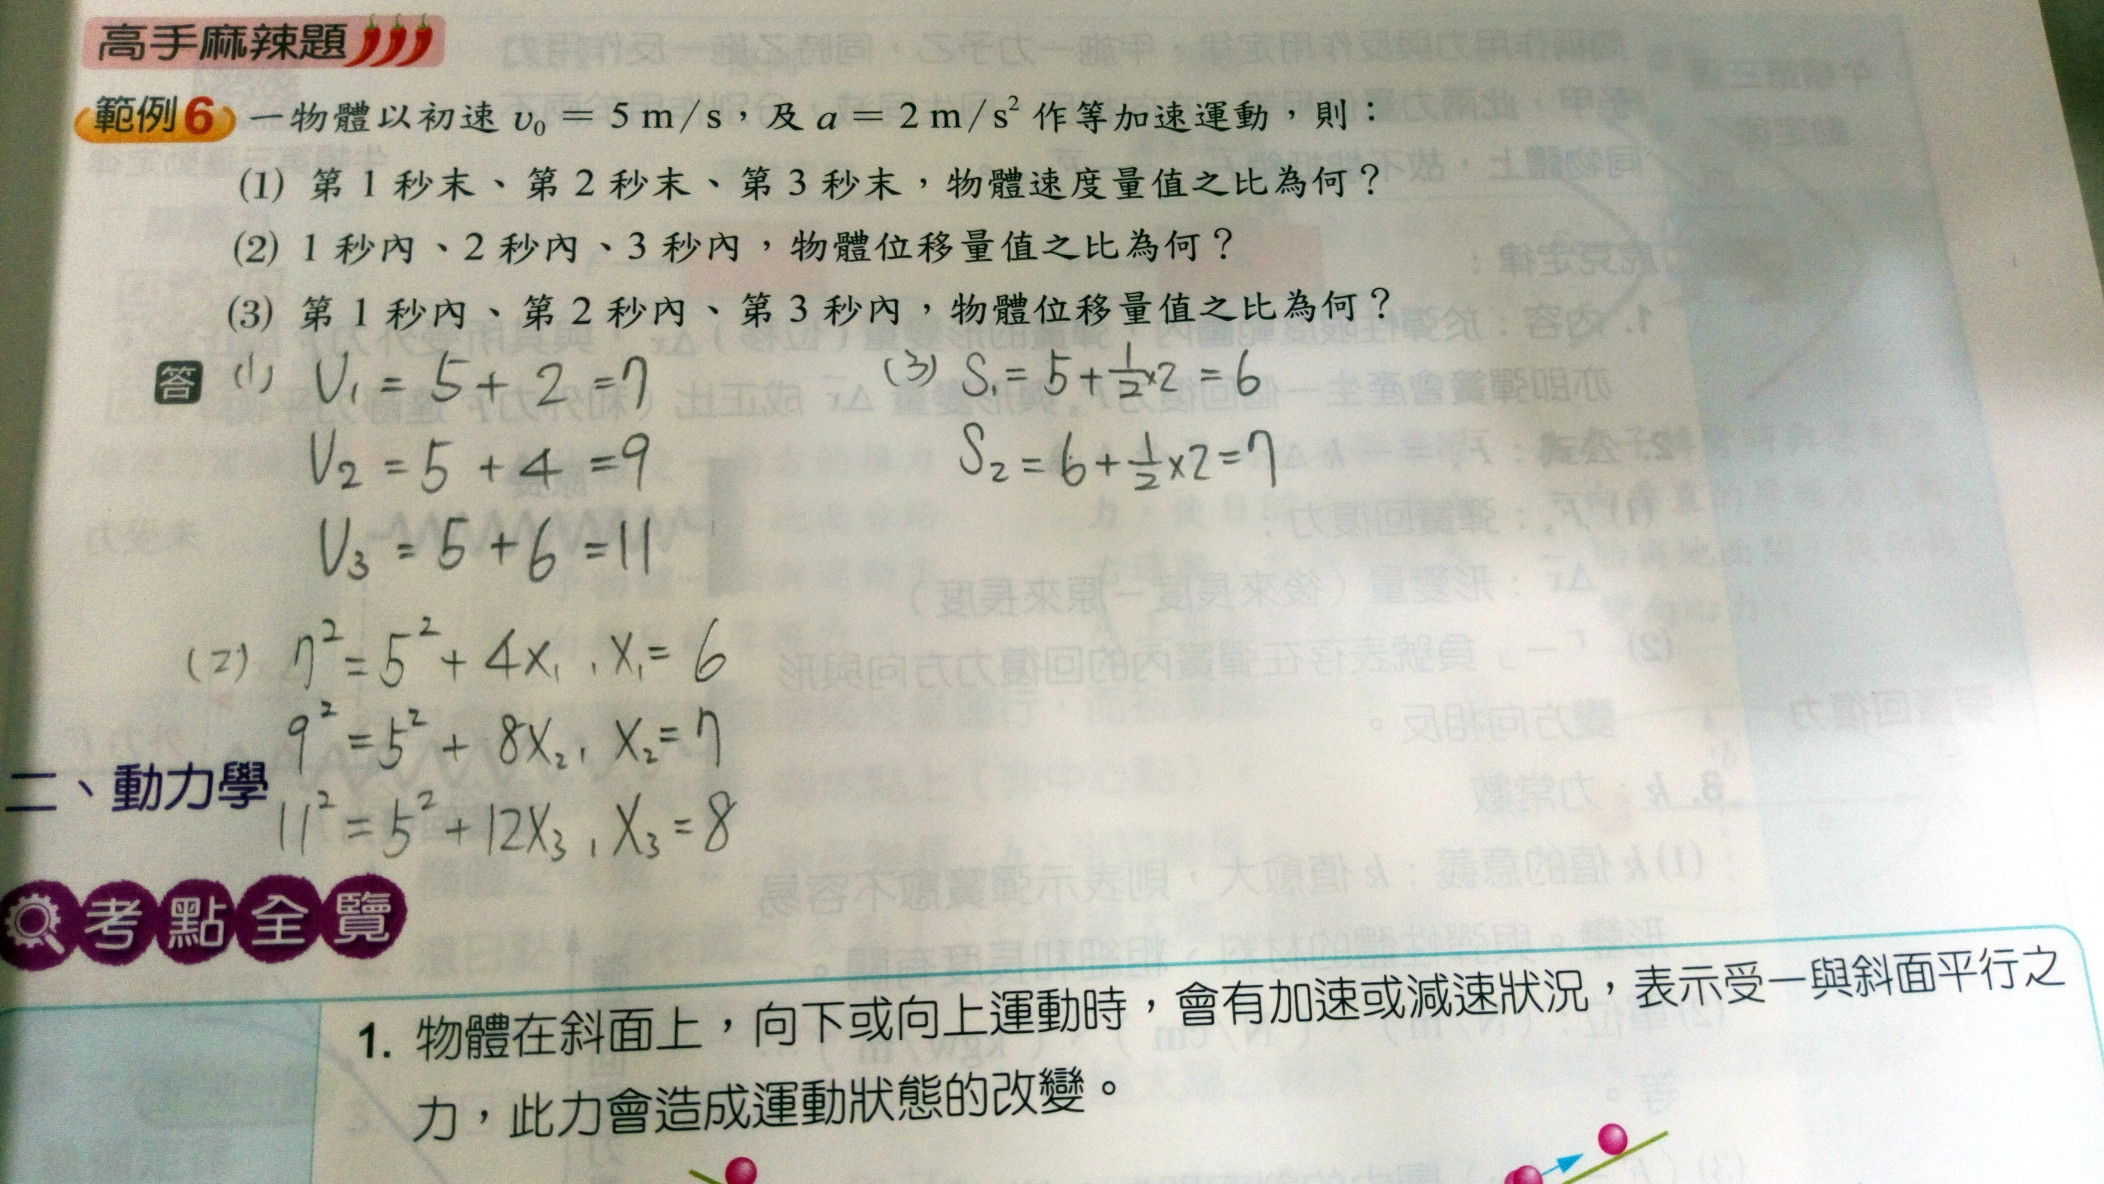 高手麻辣題
範例6 一物體以初速 v₀ = 5 m/s,及 a = 2 m/s² 作等加速運動,則:
(1) 第 1 秒末、第 2 秒末、第 3 秒末,物體速度量值之比為何?
(2) 1 秒內、2 秒內、3 秒內,物體位移量值之比為何?
(3) 第 1 秒內、第 2 秒內、第 3 秒內,物體位移量值之比為何?
答 (1) V₁ = 5 + 2 = 7
V₂ = 5 + 4 = 9
V₃ = 5 + 6 = 11
(2) 7² = 5² + 4X₁, X₁ = 6
9² = 5² + 8X₂, X₂ = 7
11² = 5² + 12X₃, X₃ = 8
(3) S₁ = 5 + ½×2 = 6
S₂ = 6 + ½×2 = 7
二、動力學
考點全覽
1. 物體在斜面上,向下或向上運動時,會有加速或減速狀況,表示受一與斜面平行之
力,此力會造成運動狀態的改變。